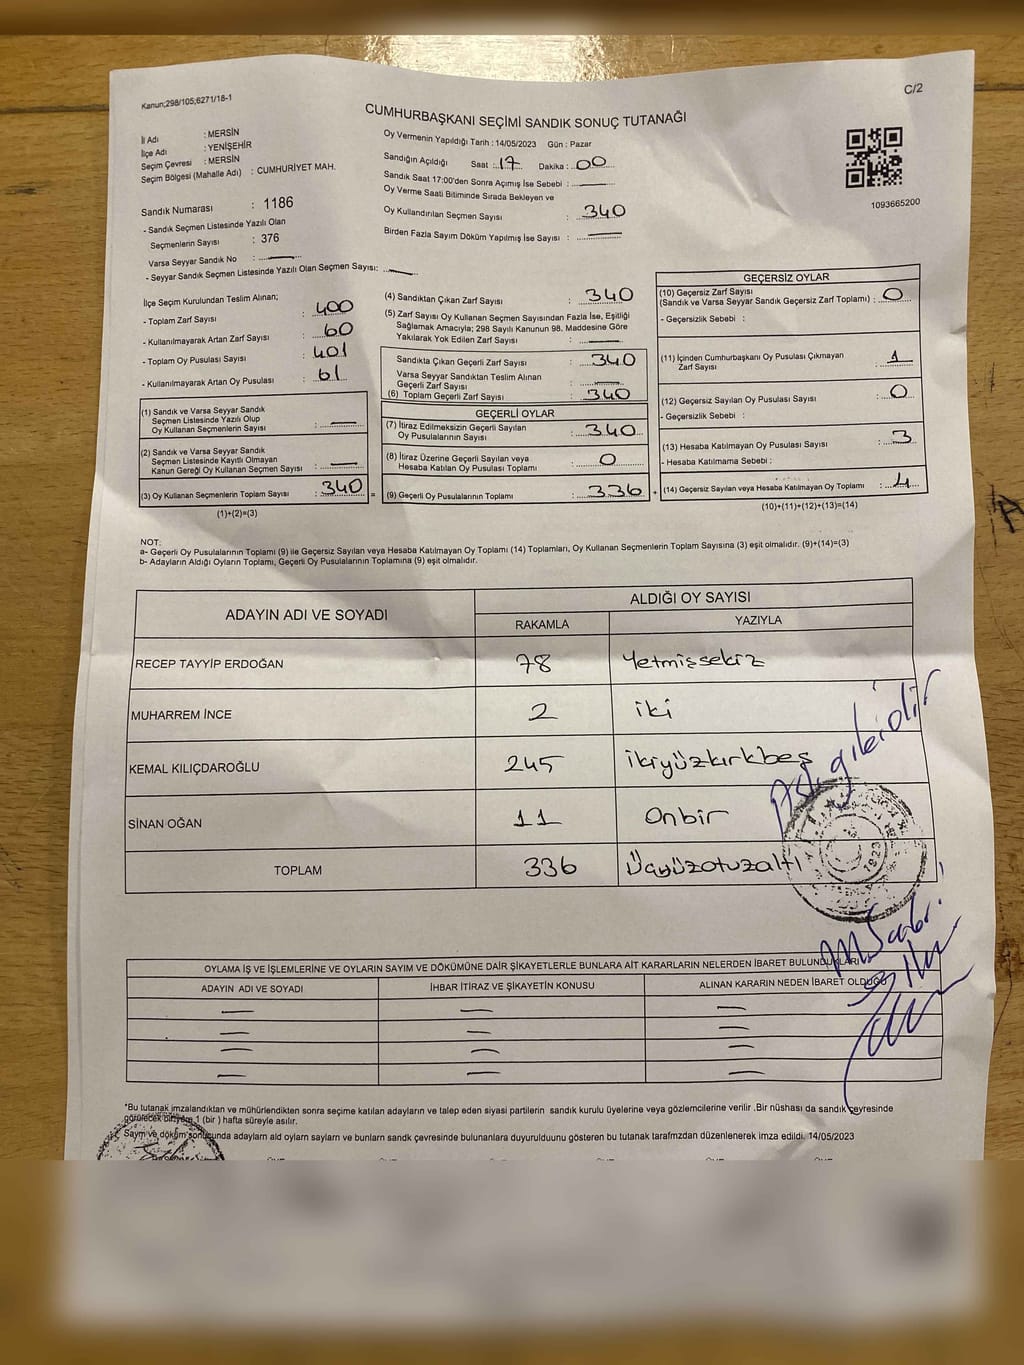 Kanun;298/105;6271/18-1
C/2
CUMHURBAŞKANI SEÇİMİ SANDIK SONUÇ TUTANAĞI
İl Adı : MERSİN
İlçe Adı : YENİŞEHİR
Seçim Çevresi : MERSİN
Seçim Bölgesi (Mahalle Adı) : CUMHURİYET MAH.
Sandık Numarası : 1186
- Sandık Seçmen Listesinde Yazılı Olan
Seçmenlerin Sayısı : 376
Varsa Seyyar Sandık No :
- Seyyar Sandık Seçmen Listesinde Yazılı Olan Seçmen Sayısı:
Oy Vermenin Yapıldığı Tarih : 14/05/2023 Gün : Pazar
Sandığın Açıldığı Saat : 17 Dakika : 00
Sandık Saat 17:00'den Sonra Açımış İse Sebebi :
Oy Verme Saati Bitiminde Sırada Bekleyen ve
Oy Kullandırılan Seçmen Sayısı : 340
Birden Fazla Sayım Döküm Yapılmış İse Sayısı :
1093665200
İlçe Seçim Kurulundan Teslim Alınan;
- Toplam Zarf Sayısı : 400
- Kullanılmayarak Artan Zarf Sayısı : 60
- Toplam Oy Pusulası Sayısı : 401
- Kullanılmayarak Artan Oy Pusulası : 61
(1) Sandık ve Varsa Seyyar Sandık
Seçmen Listesinde Yazılı Olup
Oy Kullanan Seçmenlerin Sayısı :
(2) Sandık ve Varsa Seyyar Sandık
Seçmen Listesinde Kayıtlı Olmayan
Kanun Gereği Oy Kullanan Seçmen Sayısı :
(3) Oy Kullanan Seçmenlerin Toplam Sayısı : 340 =
(1)+(2)=(3)
(4) Sandıktan Çıkan Zarf Sayısı : 340
(5) Zarf Sayısı Oy Kullanan Seçmen Sayısından Fazla İse, Eşitliği
Sağlamak Amacıyla; 298 Sayılı Kanunun 98. Maddesine Göre
Yakılarak Yok Edilen Zarf Sayısı :
Sandıkta Çıkan Geçerli Zarf Sayısı : 340
Varsa Seyyar Sandıktan Teslim Alınan
Geçerli Zarf Sayısı :
(6) Toplam Geçerli Zarf Sayısı : 340
GEÇERLİ OYLAR
(7) İtiraz Edilmeksizin Geçerli Sayılan
Oy Pusulalarının Sayısı : 340
(8) İtiraz Üzerine Geçerli Sayılan veya
Hesaba Katılan Oy Pusulası Toplamı : 0
(9) Geçerli Oy Pusulalarının Toplamı : 336 +
GEÇERSİZ OYLAR
(10) Geçersiz Zarf Sayısı
(Sandık ve Varsa Seyyar Sandık Geçersiz Zarf Toplamı) : 0
- Geçersizlik Sebebi :
(11) İçinden Cumhurbaşkanı Oy Pusulası Çıkmayan
Zarf Sayısı : 1
(12) Geçersiz Sayılan Oy Pusulası Sayısı : 0
- Geçersizlik Sebebi :
(13) Hesaba Katılmayan Oy Pusulası Sayısı : 3
- Hesaba Katılmama Sebebi :
(14) Geçersiz Sayılan veya Hesaba Katılmayan Oy Toplamı : 4
(10)+(11)+(12)+(13)=(14)
NOT:
a- Geçerli Oy Pusulalarının Toplamı (9) ile Geçersiz Sayılan veya Hesaba Katılmayan Oy Toplamı (14) Toplamları, Oy Kullanan Seçmenlerin Toplam Sayısına (3) eşit olmalıdır. (9)+(14)=(3)
b- Adayların Aldığı Oyların Toplamı, Geçerli Oy Pusulalarının Toplamına (9) eşit olmalıdır.
ADAYIN ADI VE SOYADI ALDIĞI OY SAYISI
RAKAMLA YAZIYLA
RECEP TAYYİP ERDOĞAN 78 Yetmişsekiz
MUHARREM İNCE 2 iki
KEMAL KILIÇDAROĞLU 245 ikiyüzkırkbeş
SİNAN OĞAN 11 Onbir
TOPLAM 336 Üçyüzotuzaltı
Aslı gibidir
1923
OYLAMA İŞ VE İŞLEMLERİNE VE OYLARIN SAYIM VE DÖKÜMÜNE DAİR ŞİKAYETLERLE BUNLARA AİT KARARLARIN NELERDEN İBARET BULUNDUKLARI
ADAYIN ADI VE SOYADI İHBAR İTİRAZ VE ŞİKAYETİN KONUSU ALINAN KARARIN NEDEN İBARET OLDUĞU
*Bu tutanak imzalandıktan ve mühürlendikten sonra seçime katılan adayların ve talep eden siyasi partilerin sandık kurulu üyelerine veya gözlemcilerine verilir .Bir nüshası da sandık çevresinde
görülecek bir yere 1 (bir ) hafta süreyle asılır.
Saym ve döküm sonucunda adaylarn ald oylarn saylarn ve bunlarn sandk çevresinde bulunanlara duyurulduunu gösteren bu tutanak tarafmzdan düzenlenerek imza edildi. 14/05/2023